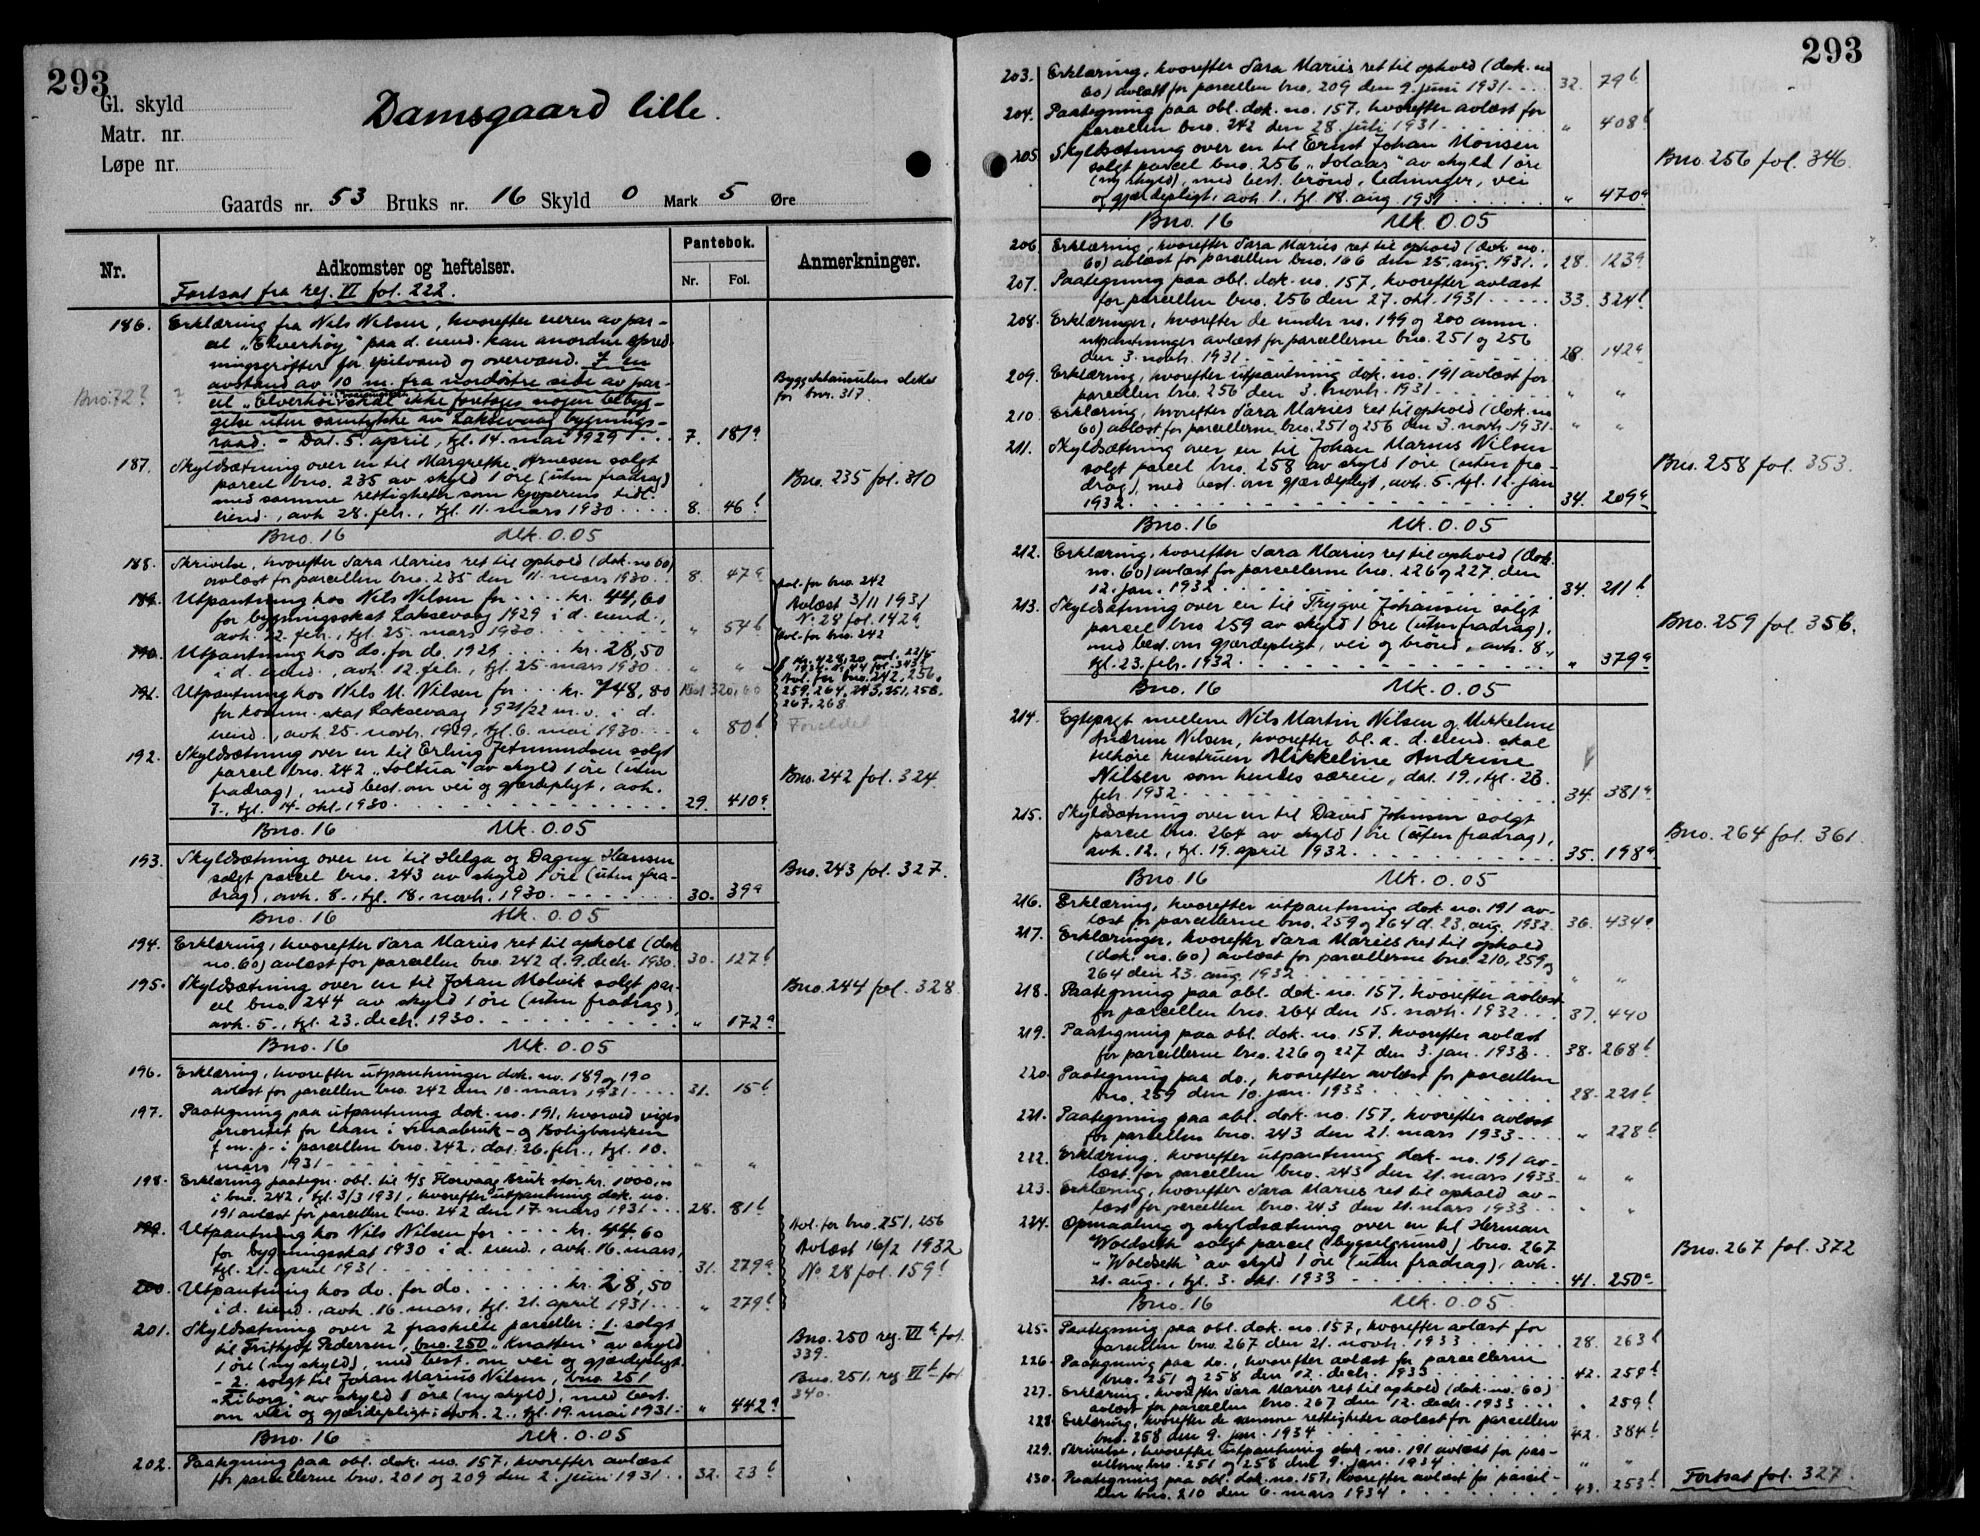 293
Gl. skyld
Matr. nr.
Løpe nr.
Damsgaard lille.
Gaards nr. 53 Bruks nr. 16 Skyld 0 Mark 5 Øre
Nr.
Adkomster og heftelser.
Pantebok.
Nr. Fol.
Anmerkninger.
Fortsat fra reg. VI fol. 222.
186. Erklæring fra Nils Nilsen, hvorefter eieren av par-
cel "Elverhøy" paa d. eiend. kan anordne spred-
ningsgrøfter for spilvand og overvand. I en
avstand av 10 m. fra nordøstre side av par-
Bno. 72? ?
cel "Elverhøi" skal ikke foretages nogen bebyg-
gelse uten samtykke av Laksevaag bygnings-
raad. - Dat. 5. april, tgl. 14. mai 1929 7. 181a
Byggeklausulen slettet
for bnr. 317.
187. Skyldsætning over en til Margrethe Arnesen solgt
parcel bno. 235 av skyld 1 øre (uten fradrag)
med samme rettigheter som kjøperens tidl.
eiend., avh. 28. febr., tgl. 11. mars 1930 8. 46b
Bno. 235 fol. 310
Bno. 16 Mk. 0.05
188. Skrivelse, hvorefter Sara Maries ret til ophold (dok. no 60)
avlæst for parcellen bno. 235 den 11. mars 1930 8. 47a
189. Utpantning hos Nils Nilsen for kr. 44,60
for bygningsskat Laksevaag 1929 i d. eiend.,
avh. 12. febr., tgl. 25. mars 1930 " 54b
Avl. for bno. 242
Avlæst 3/11 1931
No 28 fol. 142a
Avl. for bno. 242
190. Utpantning hos do. for do. 1929 kr. 28,50
i d. eiend., avh. 12. febr., tgl. 25. mars 1930 " "
191. Utpantning hos Nils M. Nilsen for kr. 748,80
for komm. skat Laksevaag 1921/22 m.v. i d.
eiend., avh. 25. novbr. 1929, tgl. 6. mai 1930 " 80b
Rest 320,60
Avl. for bno. 242, 256,
259, 264, 243, 251, 258,
267, 268
Foreldet
192. Skyldsætning over en til Erling Jetmundsen solgt
parcel bno. 242 "Soltua" av skyld 1 øre (uten
fradrag), med best. om vei og gjærdepligt, avh.
7., tgl. 14. okt. 1930 29. 410a
Bno. 242 fol. 324.
Bno. 16 Mk. 0.05
193. Skyldsætning over en til Helga og Dagny Hansen
solgt parcel bno. 243 av skyld 1 øre (uten fra-
drag), avh. 8., tgl. 18. novbr. 1930 30. 39a
Bno. 243 fol. 327.
Bno. 16 Mk. 0.05
194. Erklæring, hvorefter Sara Maries ret til ophold (dok.
no. 60) avlæst for parcellen bno. 242 d. 9. decbr. 1930. 30. 127b
195. Skyldsætning over en til Johan Molvik solgt par-
cel bno. 244 av skyld 1 øre (uten fradrag),
avh. 5., tgl. 23. decbr. 1930. " 172a
Bno. 244 fol. 328.
Bno. 16 Mk. 0.05
196. Erklæring, hvorefter utpantninger dok. no. 189 og 190
avlæst for parcellen bno. 242 den 10. mars 1931 31. 15b
197. Paategning paa utpantning dok. no. 191, hvorved viges
prioritet for laan i Smaabruk- og Boligbanken
f. m. p. i parcellen bno. 242, dat. 26. febr., tgl. 10.
mars 1931 " "
198. Erklæring paategn. obl. til A/S Florvaag Bruk stor kr. 1000,00
i bno. 242, tgl. 3/3 1931, hvorefter utpantning dok. no.
191 avlæst for parcellen bno. 242 den 17. mars 1931 28. 81b
199. Utpantning hos Nils Nilsen for kr. 44,60
for bygningsskat 1930 i d. eiend., avh. 16. mars,
tgl. 21. april 1931 31. 279a
Avl. for bno. 251, 256
Avlæst 16/2 1932
No 28 fol. 159b
200. Utpantning hos do. for do. kr. 28,50
i d. eiend., avh. 16. mars, tgl. 21. april 1931 " 279b
201. Skyldsætning over 2 fraskilte parceller: 1. solgt
til Frithjof Pedersen, bno. 250 "Knatten" av skyld
1 øre (ny skyld), med best. om vei og gjærdepligt.
- 2. solgt til Johan Marius Nilsen, bno. 251
"Liborg" av skyld 1 øre (ny skyld), med best.
om vei og gjærdepligt; avh. 2., tgl. 19. mai 1931. " 442a
Bno. 250 reg. VIb fol.
339.
Bno. 251. reg VIb fol
340.
Bno. 16 Mk. 0.05
202. Paategning paa obl. dok. no. 157, hvorefter avlæst
for parcellerne bno. 201 og 209 den 2. juni 1931 32. 23b
293
203. Erklæring, hvorefter Sara Maries ret til ophold (dok. no
60) avlæst for parcellen bno. 209 den 9. juni 1931 32. 79b
204. Paategning paa obl. dok. no. 157, hvorefter avlæst for
parcellen bno. 242 den 28. juli 1931 " 408b
205. Skyldsætning over en til Ernst Johan Monsen
solgt parcel bno. 256 "Solaas" av skyld 1 øre
(ny skyld), med best. brønd, ledninger, vei
og gjærdepligt, avh. 1., tgl. 18. aug. 1931 " 470a
Bno. 256 fol. 346.
Bno. 16 Mk. 0.05
206. Erklæring, hvorefter Sara Maries ret til ophold (dok. no.
60) avlæst for parcellen bno. 166 den 25. aug. 1931. 28. 123a
207. Paategning paa obl. dok. no. 157, hvorefter avlæst
for parcellen bno. 256 den 27. okt. 1931 33. 324b
208. Erklæringer, hvorefter de under no. 199 og 200 anm.
utpantninger avlæst for parcellerne bno. 251 og 256
den 3. novbr. 1931 28. 142a
209. Erklæring, hvorefter utpantning dok. no. 191 avlæst for
parcellen bno. 256 den 3. novbr. 1931 " "
210. Erklæring, hvorefter Sara Maries ret til ophold (dok. no
60) avlæst for parcellerne bno. 251 og 256 den 3. novbr. 1931. " "
211. Skyldsætning over en til Johan Marius Nilsen
solgt parcel bno. 258 av skyld 1 øre (uten fra-
drag), med best. om gjærdepligt, avh. 5., tgl. 12. jan.
1932 34. 209a
Bno. 258 fol. 353.
Bno. 16 Mk. 0.05
212. Erklæring, hvorefter Sara Maries ret til ophold (dok.
no. 60) avlæst for parcellerne bno. 226 og 227 den
12. jan. 1932 34. 211b
213. Skyldsætning over en til Trygve Johansen solgt
parcel bno 259 av skyld 1 øre (uten fradrag),
med best. om gjærdepligt, vei og brønd, avh. 8.,
tgl. 23. febr. 1932. " 379a
Bno. 259 fol. 356.
Bno. 16 Mk. 0.05
214. Egtepagt mellem Nils Martin Nilsen og Mikkeline
Andrine Nilsen, hvorefter bl. a. d. eiend. skal
tilhøre hustruen Mikkeline Andrine
Nilsen som hendes særeie, dat. 19., tgl. 23.
febr. 1932 34. 381a
215. Skyldsætning over en til David Johnsen solgt
parcel bno. 264 av skyld 1 øre (uten fradrag),
avh. 12., tgl. 19. april 1932. 35. 198a
Bno. 264 fol. 361.
Bno. 16 Mk. 0.05
216. Erklæring, hvorefter utpantning dok. no. 191 av-
læst for parcellerne bno. 259 og 264 d. 23. aug. 1932. 36. 434a
217. Erklæringer, hvorefter Sara Maries ret til ophold
(dok. no. 60) avlæst for parcellerne bno. 210, 259 og
264 den 23. aug. 1932 " "
218. Paategning paa obl. dok. no. 157, hvorefter avlæst
for parcellen bno. 264 den 15. novbr. 1932 37. 440
219. Paategning paa obl. dok. no. 157, hvorefter avlæst
for parcellerne bno. 226 og 227 den 3. jan. 1933 38. 268b
220. Paategning paa do., hvorefter avlæst for parcellen
bno. 259 den 10. jan. 1933 28. 221b
221. Paategning paa obl. dok. no. 157, hvorefter avlæst
for parcellen bno. 243 den 21. mars 1933 " 228b
222. Erklæring, hvorefter utpantning dok. no. 191 av-
læst for parcellen bno. 243 den 21. mars 1933 " "
223. Erklæring, hvorefter Sara Maries ret til ophold av-
læst for parcellen bno. 243 den 21. mars 1933 " "
224. Opmaaling og skyldsætning over en til Herman
Woldseth solgt parcel (bygselgrund) bno. 267
"Woldseth" av skyld 1 øre (uten fradrag), avh.
21. aug., tgl. 3. okt. 1933 41. 250a
Bno. 267 fol. 372
Bno. 16 Mk. 0.05
225. Paategning paa obl. dok. no. 157, hvorefter avlæst for
parcellen bno. 267 den 21. novbr. 1933 28. 263b
226. Paategning paa do., hvorefter avlæst for parcellerne
bno. 251 og 258 den 12. decbr. 1933 42. 259b
227. Erklæring, hvorefter Sara Maries ret til ophold (dok. no. 60)
avlæst for parcellen bno. 267 den 12. decbr. 1933 " 259b
228. Erklæring, hvorefter de samme rettigheter avlæst for parcellen
bno. 258 den 9. jan. 1934 42. 384b
229. Skrivelse, hvorefter utpantning dok. no. 191 avlæst for par-
cellerne bno. 251 og 258 den 9. jan. 1934 " "
230. Paategning paa obl. dok. no. 157, hvorefter avlæst for parcel-
len bno. 210 den 6. mars 1934 43. 253b
Fortsat fol. 327.